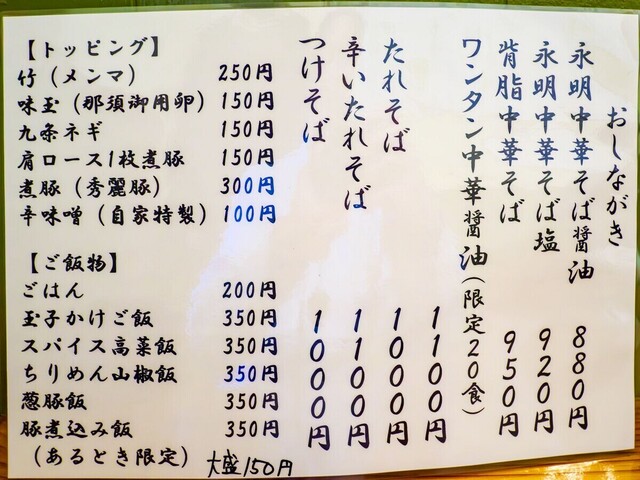 おしながき
永明中華そば醤油 880円
永明中華そば塩 920円
背脂中華そば 950円
ワンタン中華醤油(限定20食) 1100円
たれそば 1000円
辛いたれそば 1100円
つけそば 1000円
【トッピング】
竹(メンマ) 250円
味玉(那須御用卵) 150円
九条ネギ 150円
肩ロース1枚煮豚 150円
煮豚(秀麗豚) 300円
辛味噌(自家特製) 100円
【ご飯物】
ごはん 200円
玉子かけご飯 350円
スパイス高菜飯 350円
ちりめん山椒飯 350円
葱豚飯 350円
豚煮込み飯 350円
(あるとき限定) 大盛150円